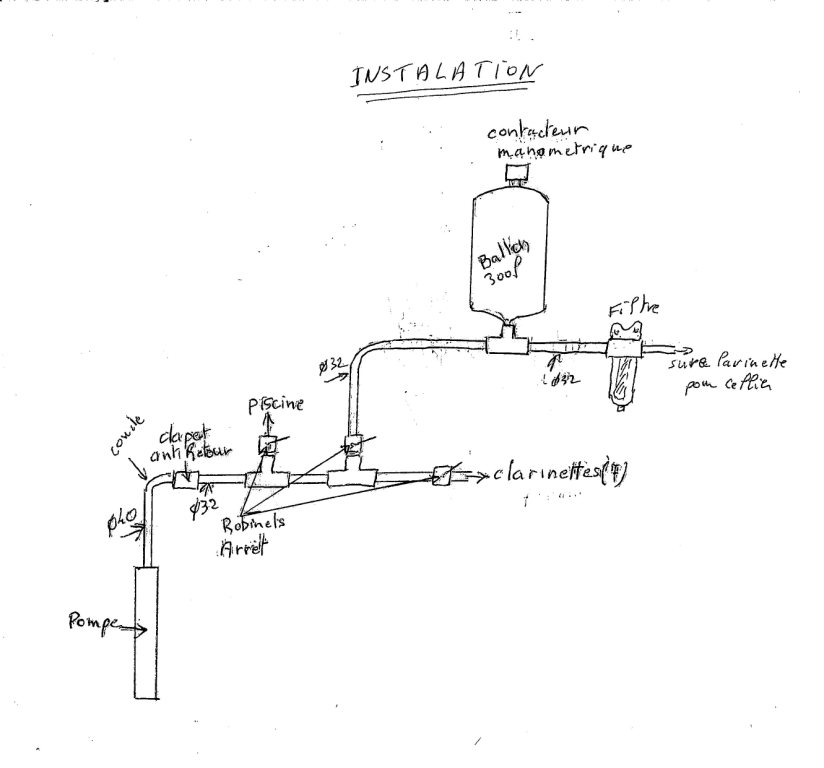 INSTALATION
contacteur
manometrique
Ballon
300l
Filtre
ø32
ø32
pour cellier
piscine
coude
clapet
anti Retour
ø32
clarinettes
ø40
Robinets
Arrêt
Pompe